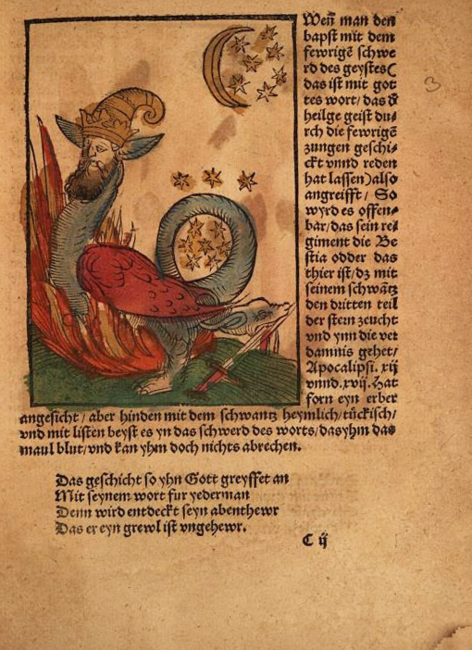 Weñ man den
bapst mit dem
fewrigẽ schwe
rd des geystes(
das ist mit got
tes wort/das d͛
heilge geist du⸗
rch die fewrigẽ
zungen geschi⸗
ckt vnnd reden
hat lassen)also
angreifft/ So
wyrd es offen⸗
bar/das sein re⸗
giment die Be
stia odder das
thier ist/dz mit
seinem schwãtz
den dritten teil
der stern zeucht
vnd ynn die ver
damnis gehet/
Apocalipsi. xij
vnnd.xvij. Hat
forn eyn erber
angesicht/aber hinden mit dem schwantz heymlich/tückisch/
vnd mit listen beyst es yn das schwerd des worts/das yhm das
maul blut/vnd kan yhm doch nichts abrechen.
Das geschicht so yhn Gott greyffet an
Mit seynem wort fur yederman
Denn wird entdeckt seyn abenthewr
Das er eyn grewl ist vngehewr.
C ij
3